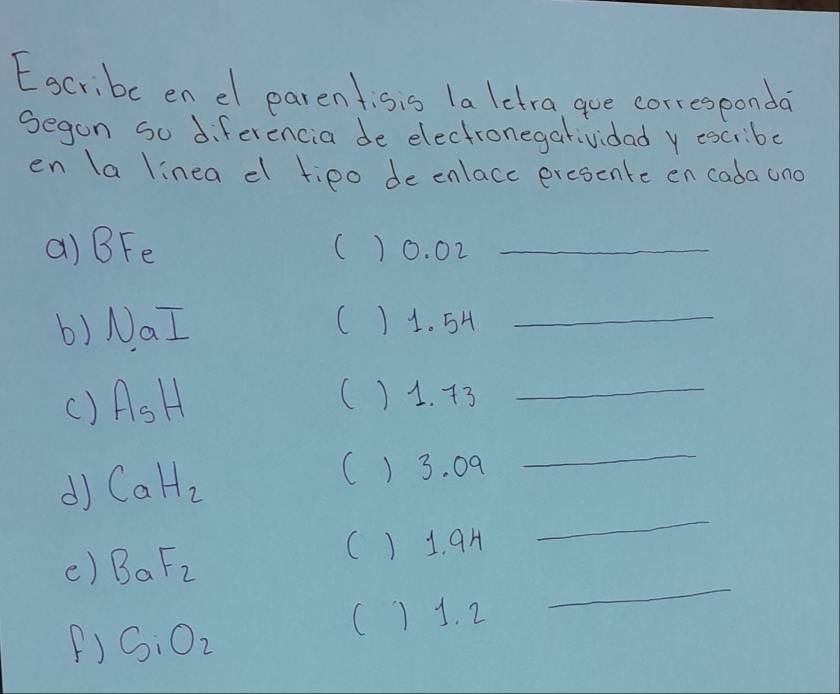 Escribe en el parentisis la letra que correspondá
segun su diferencia de electronegatividad y escribe
en la linea el tipo de enlace presente en cada uno
a) BFe ( ) 0.02
b) NaI ( ) 1.54
c) AsH ( ) 1.73
d) CaH₂ ( ) 3.09
e) BaF₂ ( ) 1.94
f) SiO₂ ( ) 1.2